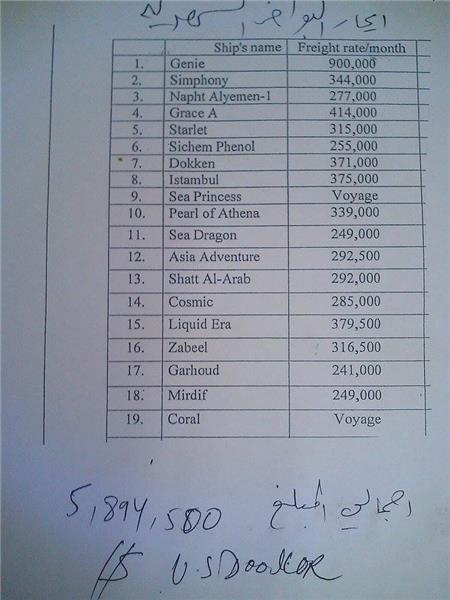 ايجار البواخر الشهرية
Ship's name Freight rate/month
1. Genie 900,000
2. Simphony 344,000
3. Napht Alyemen-1 277,000
4. Grace A 414,000
5. Starlet 315,000
6. Sichem Phenol 255,000
7. Dokken 371,000
8. Istambul 375,000
9. Sea Princess Voyage
10. Pearl of Athena 339,000
11. Sea Dragon 249,000
12. Asia Adventure 292,500
13. Shatt Al-Arab 292,000
14. Cosmic 285,000
15. Liquid Era 379,500
16. Zabeel 316,500
17. Garhoud 241,000
18. Mirdif 249,000
19. Coral Voyage
اجمالي المبلغ 5,894,500
$ U.S Doollar